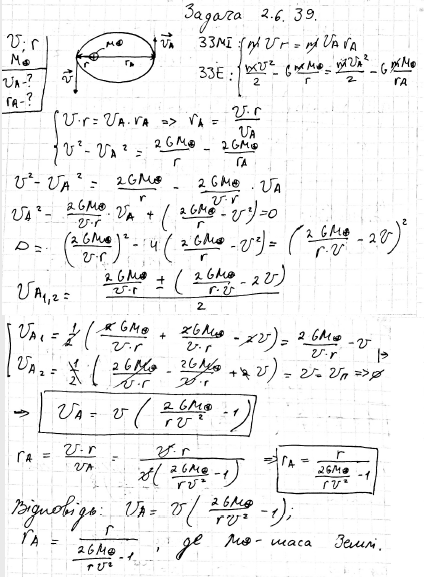 Задача 2.6.39.
v; r
M⊕
v_A - ?
r_A - ?
M⊕ r r_A v v_A
ЗЗМІ: {m v r = m v_A r_A
ЗЗЕ: {mv²/2 - G mM⊕/r = mv_A²/2 - G mM⊕/r_A
{v·r = v_A·r_A => r_A = v·r/v_A
{v² - v_A² = 2GM⊕/r - 2GM⊕/r_A
v² - v_A² = 2GM⊕/r - 2GM⊕/(v·r) · v_A
v_A² - 2GM⊕/(v·r) · v_A + (2GM⊕/r - v²) = 0
D = (2GM⊕/(v·r))² - 4(2GM⊕/r - v²) = (2GM⊕/(r·v) - 2v)²
v_A1,2 = (2GM⊕/(v·r) ± (2GM⊕/(r·v) - 2v))/2
[v_A1 = 1/2 (2GM⊕/(v·r) + 2GM⊕/(v·r) - 2v) = 2GM⊕/(v·r) - v
[v_A2 = 1/2 · (2GM⊕/(v·r) - 2GM⊕/(v·r) + 2v) = v = v_п => ∅
=> v_A = v (2GM⊕/(rv²) - 1)
r_A = v·r/v_A = v·r/(v(2GM⊕/(rv²) - 1)) => r_A = r/(2GM⊕/(rv²) - 1)
Відповідь: v_A = v (2GM⊕/(rv²) - 1);
r_A = r/(2GM⊕/(rv²) - 1), де M⊕ - маса Землі.